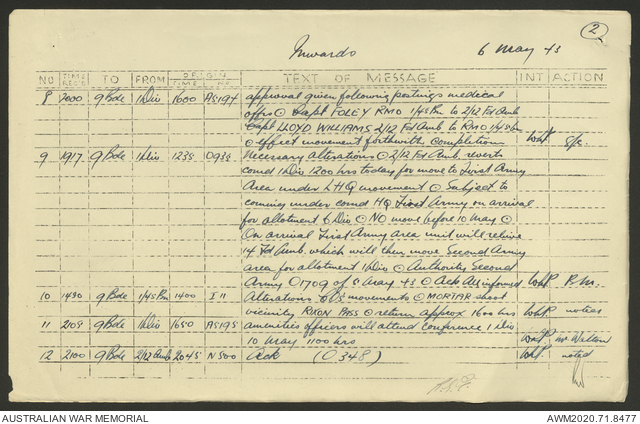 2
Inwards 6 May 43
NO TIME RECD TO FROM ORIGIN TIME NR TEXT OF MESSAGE INT ACTION
8 2000 9 Bde 1 Div 1600 AS194 approval given following postings medical
offrs ⊙ Capt FOLEY RMO 1/45 Bn to 2/12 Fd Amb
Capt LLOYD WILLIAMS 2/12 Fd Amb to RMO 1/45 Bn
⊙ effect movement forthwith completion
9 1917 9 Bde 1 Div 1235 O935 Necessary alterations ⊙ 2/12 Fd Amb reverts
comd 1 Div 1200 hrs today for move to First Army
Area under LHQ movement ⊙ Subject to
coming under comd HQ First Army on arrival
for allotment 6 Div ⊙ NO move before 10 May ⊙
On arrival First Army area unit will relieve
14 Fd Amb. which will then move Second Army
area for allotment 1 Div ⊙ Authority Second
Army O1709 of 5 May 43 ⊙ Ack All informed
10 1430 9 Bde 1/45 Bn 1400 I 11 Alterations movements ⊙ MORTAR shoot
vicinity PASS ⊙ return approx 1600 hrs noted
11 2105 9 Bde 1 Div 1650 AS195 amenities officers will attend conference 1 Div
10 May 1100 hrs
12 2100 9 Bde 2/12 Amb 2045 N500 Ack (O348) noted
AUSTRALIAN WAR MEMORIAL
AWM2020.71.8477